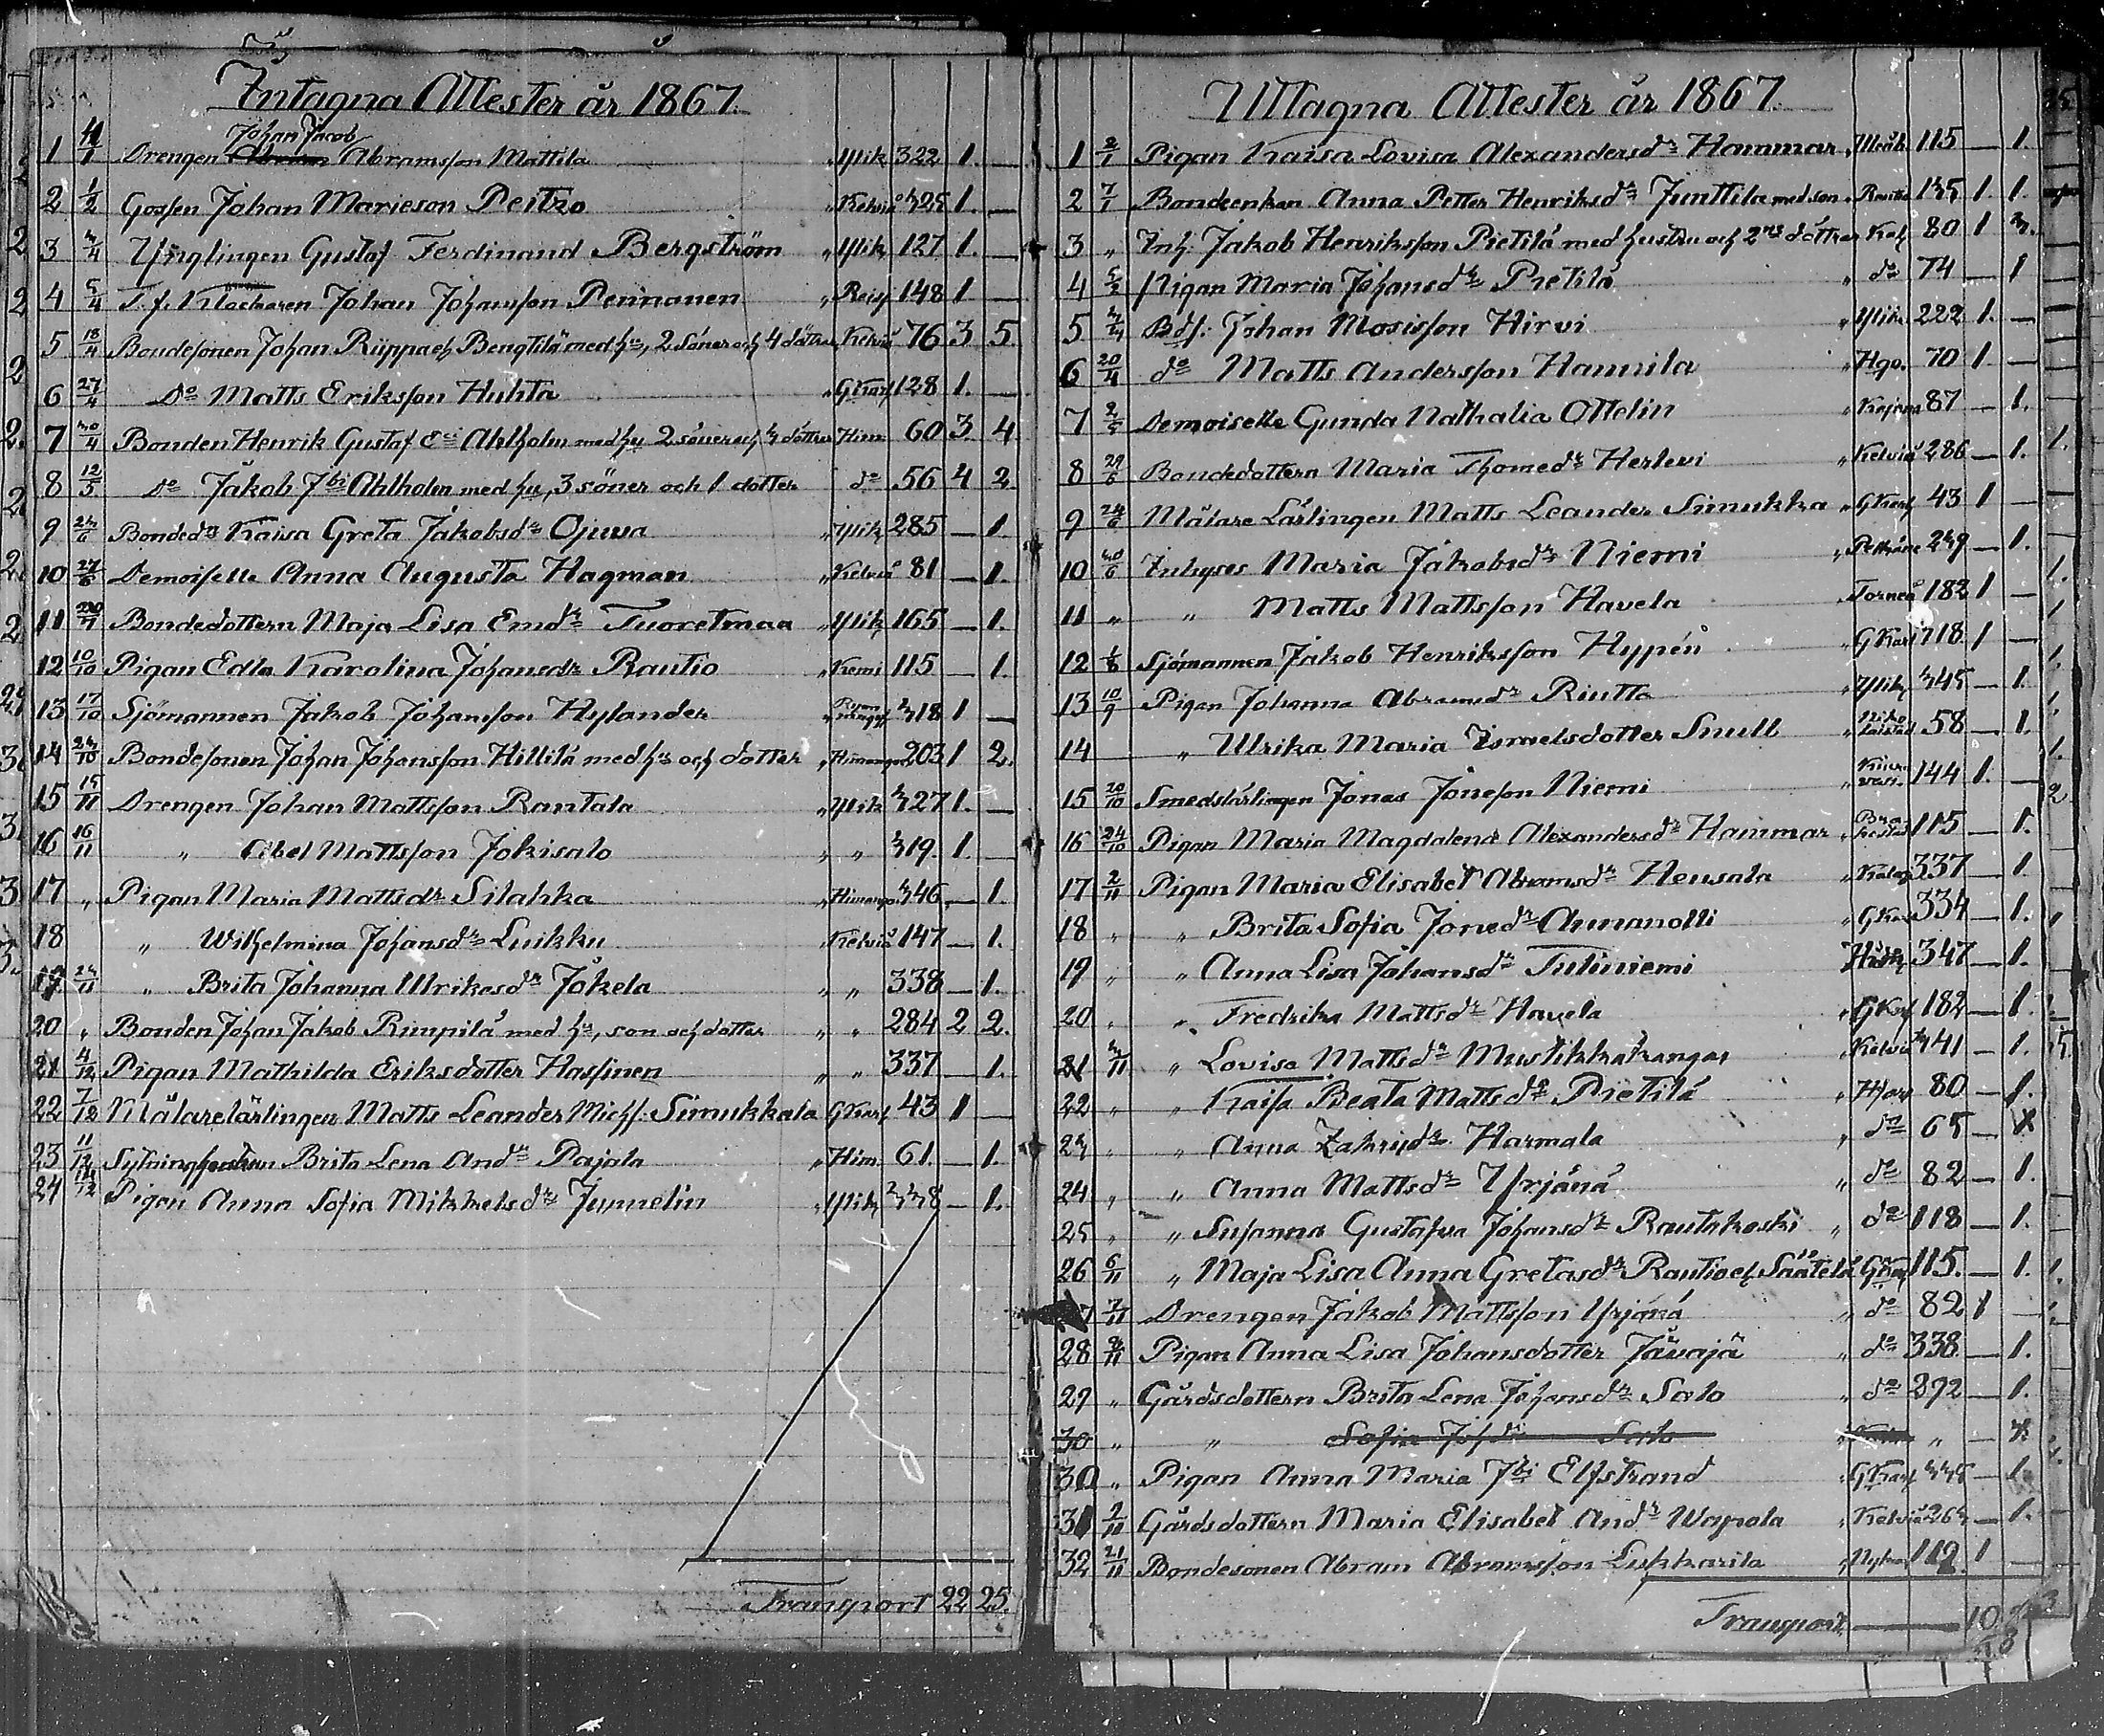 Intagna Attester år 1867.
Johan Jacob
1 Drengen Abramsson Mattila Ylik 322 1. —
2 1/2 Gossen Johan Marieson Peitzo Kelviå 325 1. —
3 Ynglingen Gustaf Ferdinand Bergström Ylik 127 1. —
4 5/4 T. f. Klockaren Johan Johansson Pennanen Reisj 148 1 —
5 18/4 Bondesonen Johan Riippa och Bengtilä med hu, 2 söner och 4 döttrar Kelviå 76 3 5.
6 27/4 Do Matts Eriksson Huhta GKarl 128 1. —
7 30/4 Bonden Henrik Gustaf Ahlholm med hu 2 söner och 3 döttrar Him 60 3. 4
8 12/5 Do Jakob Ahlholm med hu, 3 söner och 1 dotter do 56 4 2.
9 Bonded:r Kaisa Greta Jakobsdr Ojuva Ylik 285 — 1.
10 27/6 Demoiselle Anna Augusta Hagman Kelviå 81 — 1.
11 Bondedottern Maja Lisa Emdr Tuoretmaa Ylik 165 — 1.
12 10/10 Pigan Edla Karolina Johansdr Rautio Kemi 115 — 1.
13 17/10 Sjömannen Jakob Johansson Hylander 318 1 —
14 24/10 Bondesonen Johan Johansson Hillilä med hu och dotter Himango 203 1 2.
15 15/11 Drengen Johan Mattsson Rantala Ylik 327 1. —
16 16/11 " Abel Mattsson Jokisalo " " 319. 1. —
17 " Pigan Maria Mattsdr Silahka Himango 346 — 1.
18 " Wilhelmina Johansdr Luikku Kelviå 147 — 1.
19 24/11 " Brita Johanna Ulrikasdr Jokela " " 338 — 1.
20 " Bonden Johan Jakob Rimpilä med hu, son och dotter " " 284 2 2.
21 4/12 Pigan Mathilda Eriksdotter Hassinen " " 337 — 1.
22 7/12 Målarelärlingen Matts Leander Michs: Simukkala GKarl 43 1 —
23 11/12 Brita Lena Andr Pajala Him. 61. — 1.
24 Pigan Anna Sofia Mikkelsdr Junnelin Ylik 338 — 1.
Transport 22 25.
Uttagna Attester år 1867.
1 2/1 Pigan Kaisa Lovisa Alexandersdr Hammar 115 — 1.
2 7/1 Bondeenkan Anna Petter Henriksdr Junttila med son Rautio 135 1. 1.
3 " Inh: Jakob Henriksson Pietilä med hustru och 2ne döttrar 80 1 3.
4 Pigan Maria Johansdr Pietilä " do 74 — 1
5 Bds: Johan Mosisson Hirvi Ylik 222 1. —
6 20/4 do Matts Andersson Hannila 70 1. —
7 Demoiselle Gunda Nathalia Ottelin Kajana 87 — 1.
8 29/6 Bondedottern Maria Thomedr Herlevi Kelviå 286 — 1.
9 24/6 Målare Lärlingen Matts Leander Simukka GKarl 43 1 —
10 30/6 Inhyses Maria Jakobsdr Niemi 249 — 1.
11 " " Matts Mattsson Havela Torneå 182 1 —
12 Sjömannen Jakob Henriksson Hypén GKarl 118 1 —
13 10/9 Pigan Johanna Abramdr Riutta Ylik 345 — 1.
14 " Ulrika Maria Israelsdotter Snull 58 — 1.
15 20/10 Smedslärlingen Jonas Joneson Niemi 144 1. —
16 24/10 Pigan Maria Magdalena Alexandersdr Hammar Brahestad 115 — 1.
17 2/11 Pigan Maria Elisabet Abramsdr Heusala 337 — 1
18 " " Brita Sofia Jonedr Annanolli GKarl 334 — 1.
19 " " Anna Lisa Johansdr Tuliniemi 347 — 1.
20 " " Fredrika Mattsdr Havela GKarl 182 — 1.
21 " Lovisa Mattsdr Mustikkakangas Kelviå 341 — 1.
22 " " Kaisa Beata Mattsdr Pietilä 80 — 1.
23 " " Anna Zakridr Harmala " do 65 —
24 " " Anna Mattsdr Yrjänä " do 82 — 1.
25 " " Susanna Gustafva Johansdr Rautakoski " do 118 — 1.
26 6/11 " Maja Lisa Anna Gretasdr Rautio och Säätelä GKarl 115. — 1.
7 7/11 Drengen Jakob Mattsson Yrjänä " do 82 1 —
28 Pigan Anna Lisa Johansdotter Jäväjä " do 338 — 1.
29 " Gårdsdottern Brita Lena Johansdr Salo " do 292 — 1.
30 " " Sofia Johdr Salo " —
30 " Pigan Anna Maria Elfstrand GKarl — 1.
31 Gårdsdottern Maria Elisabet Andr Wapola Kelviå 263 — 1.
32 21/11 Bondesonen Abram Abramsson Lukkarila 112 1 —
Transport — 10